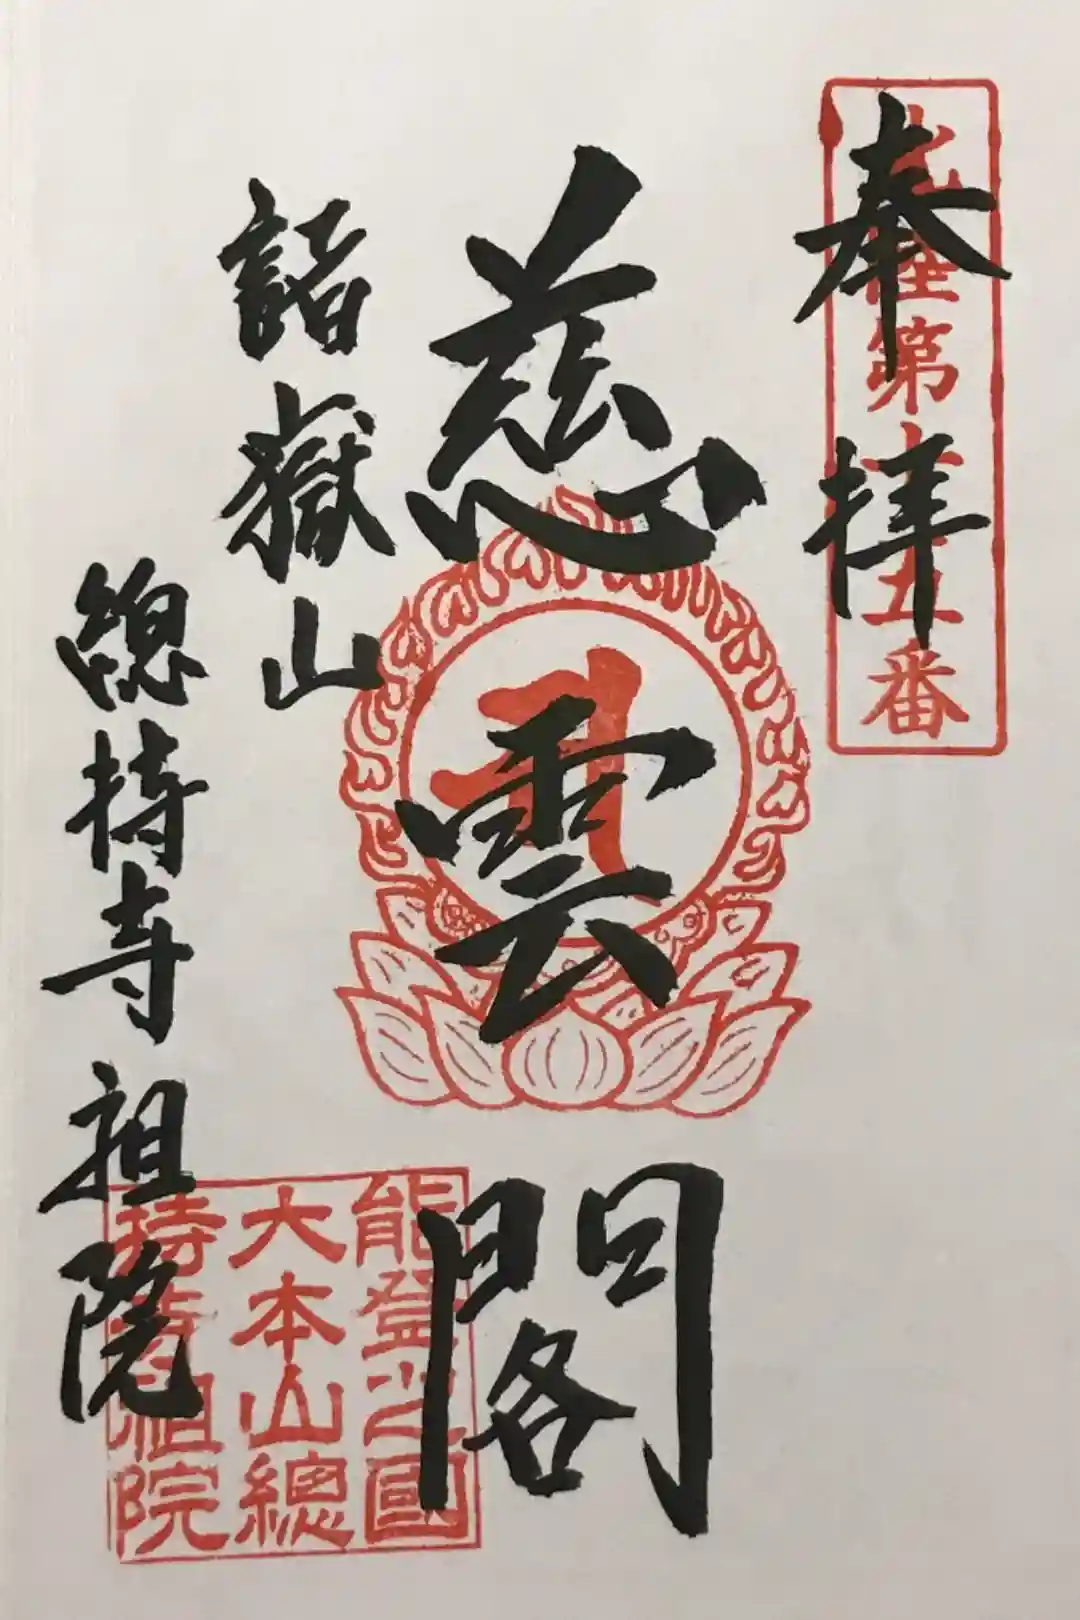 奉拝
北陸第十五番
慈雲閣
諸嶽山
總持寺祖院
能登之國
大本山總
持寺祖院